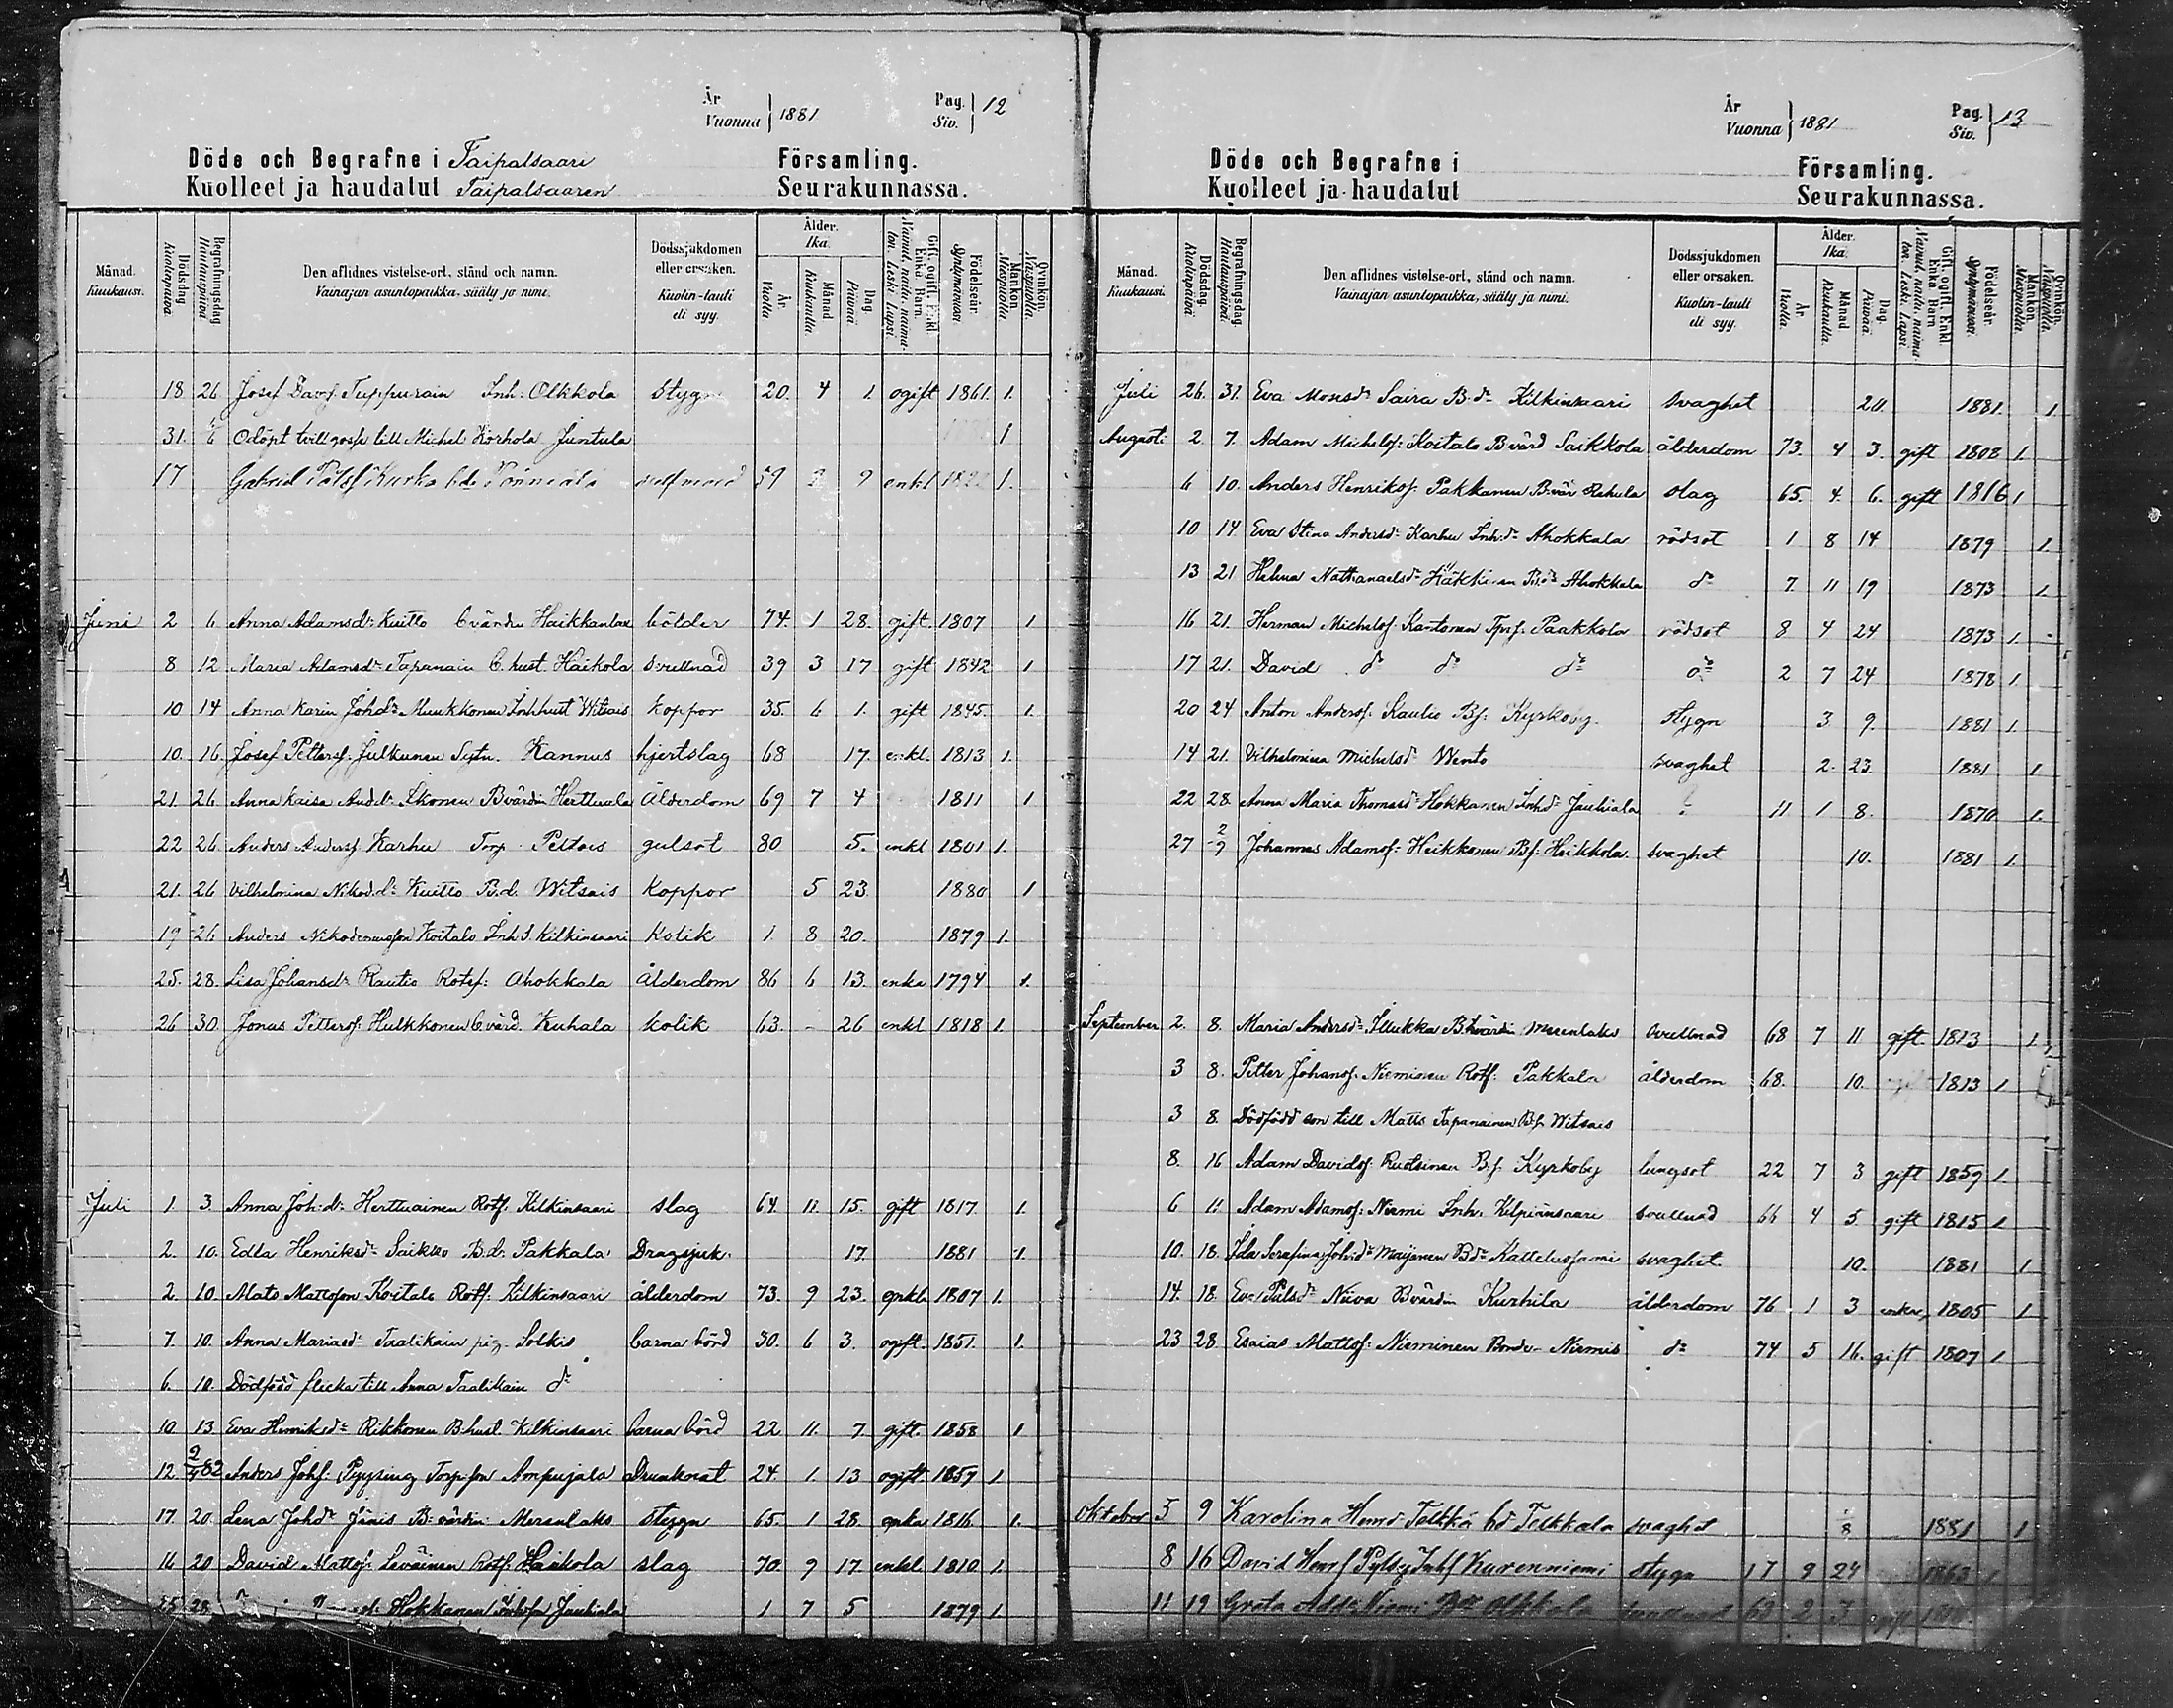 År
Vuonna } 1881
Pag.
Siv. } 12
Döde och Begrafne i Taipalsaari Församling.
Kuolleet ja haudatut Taipalsaaren Seurakunnassa.
Månad. Kuukausi. Dödsdag. Kuolinpäivä. Begrafningsdag. Hautauspäivä. Den aflidnes vistelse-ort, stånd och namn. Vainajan asuntopaikka, sääty ja nimi. Dödssjukdomen eller orsaken. Kuolin-tauti eli syy. Ålder. Ikä. År. Vuotta. Månad. Kuukautta. Dag. Päivää. Gift, ogift. Enkl. Enka. Barn. Nainut, naitu, naimaton. Leski. Lapsi. Födelseår. Syntymävuosi. Mankön. Miespuolia. Qvinkön. Naispuolia.
18 26 Josef Davf. Tuppurain Inh. Olkkola stygn 20. 4 1. ogift 1861. 1.
31. Odöpt tvill gosse till Michel Korhola Juntula 1
17 Gabriel Pålsf Kurko 59 9 enkl 1.
Juni 2 6 Anna Adamsdr Kuitto Haikkanlax bölder 74. 1 28. gift. 1807 1
8 12 Maria Adamsdr Tapanain B. hust. Haikola svullnad 39 3 17 gift 1842 1
10 14 Anna Karin Johdr Muukkonen Inhhust Witsais koppor 35. 6 1. gift 1845. 1.
10. 16. Josef Pettersf. Julkunen Sytn. Kannus hjertslag 68 17. enkl. 1813 1.
21. 26 Anna Kaisa Andrdr Ikonen Bvärdin Herttuala Ålderdom 69 7 4 1811 1
22 26. Anders Andersf Karhu Torp. Peltois gulsot 80 5. enkl 1801 1.
21. 26 Vilhelmina Nikod.dr Kuitto B.d. Witsais koppor 5 23. 1880 1
19 26 Anders Nikodemusson Koitalo Inh S. Kilkinsaari kolik 1. 8 20. 1879 1.
25. 28. Lisa Johansdr Rautio Rotef: Ahokkala Ålderdom 86 6 13. enka 1794 1.
26 30. Jonas Pettersf. Hulkkonen b. värd. Kuhala kolik 63. - 26 enkl 1818 1.
Juli 1 3. Anna Joh. dr Herttuainen Rotf. Kilkinsaari slag 64. 11. 15. gift 1817 1.
2. 10. Edla Henriksdr Saikko B.d. Pakkala Dragsjuk. 17. 1881 1.
2. 10. Mats Matsson Koitalo Rotf. Kilkinsaari ålderdom 73. 9 23. enkl. 1807 1.
7. 10. Anna Mariasdr Taalikain pig. Solkis barna börd 30. 6 3. ogift. 1851. 1.
6. 10. Dödfödd flicka till Anna Taalikain dr
10 13. Eva Henriksdr Rikkonen B. hust. Kilkinsaari barna börd 22 11. 7. gift. 1858 1
12 82 Anders Johf. Pyysing Torp. son Ampujala Drunknat 24. 1. 13 ogift. 1857 1.
17. 20. Lena Johdr Jänis B. värdin Merenlaks stygn 65. 1 28. enka 1816. 1.
16 20 David Mattsf. Leväinen Rotf. Haikola slag 70. 9 17. enkl. 1810 1.
25 28. Hokkanen Jauhiala 1 7 5 1879 1.
År
Vuonna } 1881
Pag.
Siv. } 13
Döde och Begrafne i Församling.
Kuolleet ja haudatut Seurakunnassa.
Månad. Kuukausi. Dödsdag. Kuolinpäivä. Begrafningsdag. Hautauspäivä. Den aflidnes vistelse-ort, stånd och namn. Vainajan asuntopaikka, sääty ja nimi. Dödssjukdomen eller orsaken. Kuolin-tauti eli syy. Ålder. Ikä. År. Vuotta. Månad. Kuukautta. Dag. Päivää. Gift, ogift. Enkl. Enka. Barn. Nainut, naitu, naimaton. Leski. Lapsi. Födelseår. Syntymävuosi. Mankön. Miespuolia. Qvinkön. Naispuolia.
Juli 26. 31. Eva Monsdr Saira B. dr Kilkinsaari svaghet 20. 1881. 1
Augusti 2. 7. Adam Michelsf: Koitalo B värd Saikkola ålderdom 73. 4 3. gift 1808 1.
6 10. Anders Henriksf. Pakkanen B.vär Rehula slag 65. 4. 6. gift 1816 1
10 14. Eva Stina Andersdr Karhu Inh.dr Ahokkala rödsot 1 8 14 1879 1.
13 21 Helena Nathanaelsdr B.dr Ahokkala dr 7. 11 19 1873 1.
16 21. Herman Michelsf. Kartonen Tprf. Paakkola rödsot 8 4 24 1873 1.
17 21. David dr dr dr dr 2 7 24 1878 1.
20 24 Anton Andersf. Rautio Bf. Kyrkoby stygn 3 9. 1881 1.
14 21. Vilhelmina Michelsdr Wento svaghet 2. 23. 1881 1
22 28. Anna Maria Thomasdr Hokkanen Inhdr Jauhiala 11 1 8. 1870 1.
27 2/9 Johannes Adamsf. Heikkonen Bf: Haikkola. svaghet 10. 1881 1.
September 2. 8. Maria Andersdr Ilukka B.värdin Merenlaks svullnad 68 7 11 gift 1813 1
3 8. Petter Johansf. Nieminen Rotf. Pakkala ålderdom 68. 10. 1813 1
3 8. Dödfödd son till Matts Tapanainen B.f. Witsais
8. 16 Adam Davidsf. Ruotsinen B.f. Kyrkoby lungsot 22 7 3 gift 1859 1.
6 11 Adam Adamsf: Niemi Inh. Kilpiänsaari svullnad 66 4 5 gift 1815 1
10. 18. Ida Serafina Joh.dr Maijanen Bdr svaghet. 10. 1881 1
14. 18. Eva Pålsdr Niiva Bvärdin Kurhila ålderdom 76 1 3 enka 1805 1
23 28. Esaias Mattsf: Nieminen Bonde. Niemis dr 74 5 16. gift 1807 1
Oktober 5 9 Karolina Hemd Telkkä bd Telkkala svaghet 1881 1
8 16 David Henrf Pylsy Inhf Kurenniemi stygn 17 9 24 1863 1
11 19 Greta Addr Niemi Olkkola svullnad 63 2 3 gift